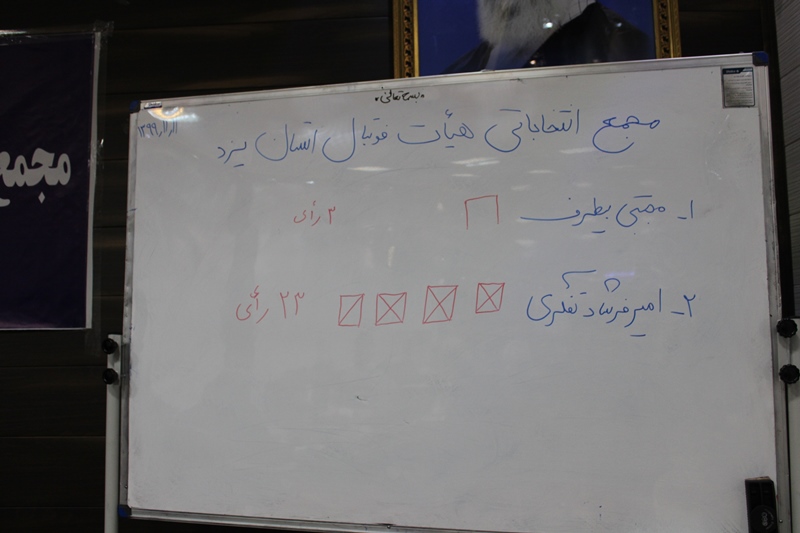 بسمه تعالی
۱۳۹۹/۱۱/۱۱
مجمع انتخاباتی هیأت فوتبال استان یزد
۱- مجتبی بیطرف ۳ رأی
۲- امیر فرشاد تفکری ۲۳ رأی
مجمع